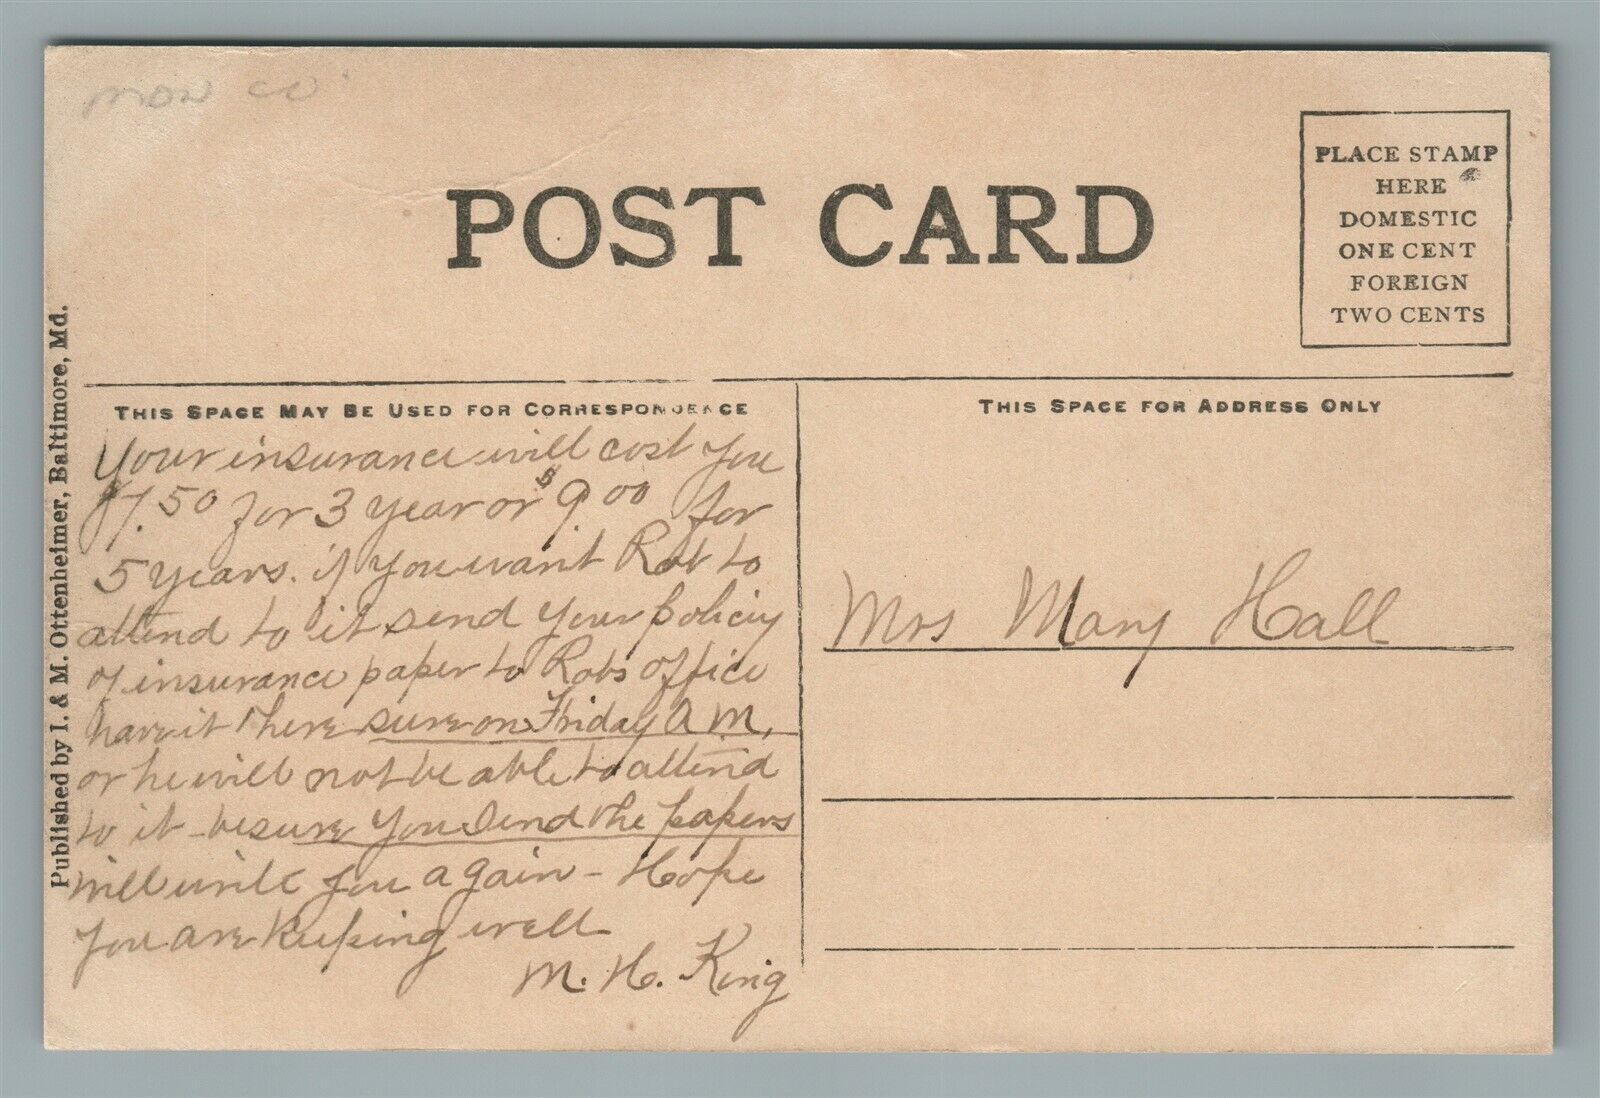 mon co
POST CARD
PLACE STAMP
HERE
DOMESTIC
ONE CENT
FOREIGN
TWO CENTS
Published by I. & M. Ottenheimer, Baltimore, Md.
THIS SPACE MAY BE USED FOR CORRESPONDENCE
THIS SPACE FOR ADDRESS ONLY
Your insurance will cost you
$7.50 for 3 year or $9 00 for
5 years. if you want Rob to
attend to it send your policy
or insurance paper to Robs office
have it there sure on Friday A M,
or he will not be able to attend
to it - be sure you send the papers
will write you again - Hope
you are keeping well
M. H. King
Mrs Mary Hall